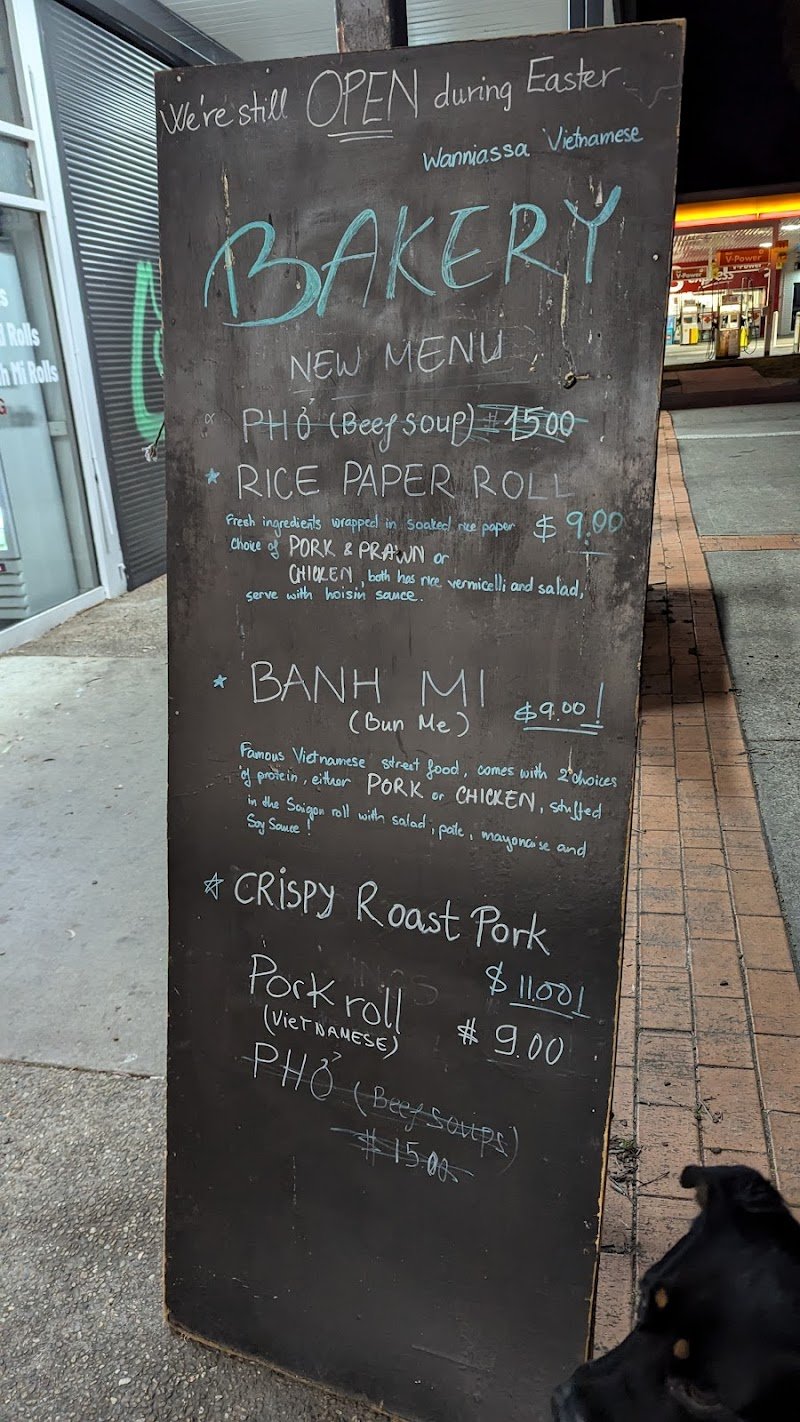 We're still OPEN during Easter
Wanniassa Vietnamese
BAKERY
NEW MENU
PHỞ (Beef soup) $ 15 00
RICE PAPER ROLL
Fresh ingredients wrapped in soaked rice paper $ 9.00
choice of PORK & PRAWN or
CHICKEN, both has rice vermicelli and salad,
serve with hoisin sauce.
BANH MI
(Bun Me) $9.00!
Famous Vietnamese street food, comes with 2 choices
of protein, either PORK or CHICKEN, stuffed
in the Saigon roll with salad, pate, mayonaise and
Soy Sauce!
CRISPY Roast Pork
$ 11.00!
Pork roll
(VIETNAMESE) $ 9.00
PHỞ (Beef soups)
$ 15.00
Rolls
Mi Rolls
V-Power
V-Power